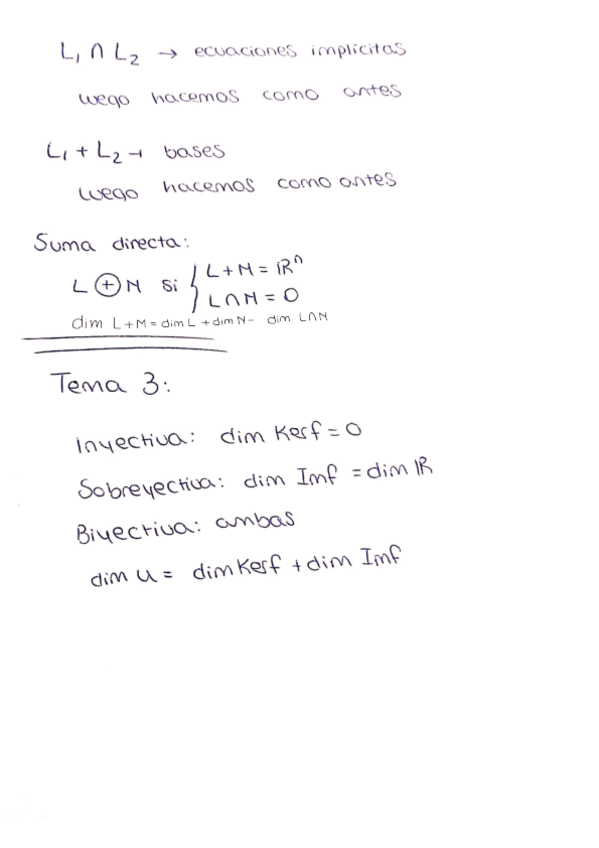 L₁ ∩ L₂ → ecuaciones implícitas
luego hacemos como antes
L₁ + L₂ → bases
luego hacemos como antes
Suma directa:
L ⊕ M si { L + M = ℝⁿ
L ∩ M = 0
dim L+M = dim L + dim M - dim L∩M
Tema 3:
Inyectiva: dim Kerf = 0
Sobreyectiva: dim Imf = dim ℝ
Biyectiva: ambas
dim U = dim Kerf + dim Imf